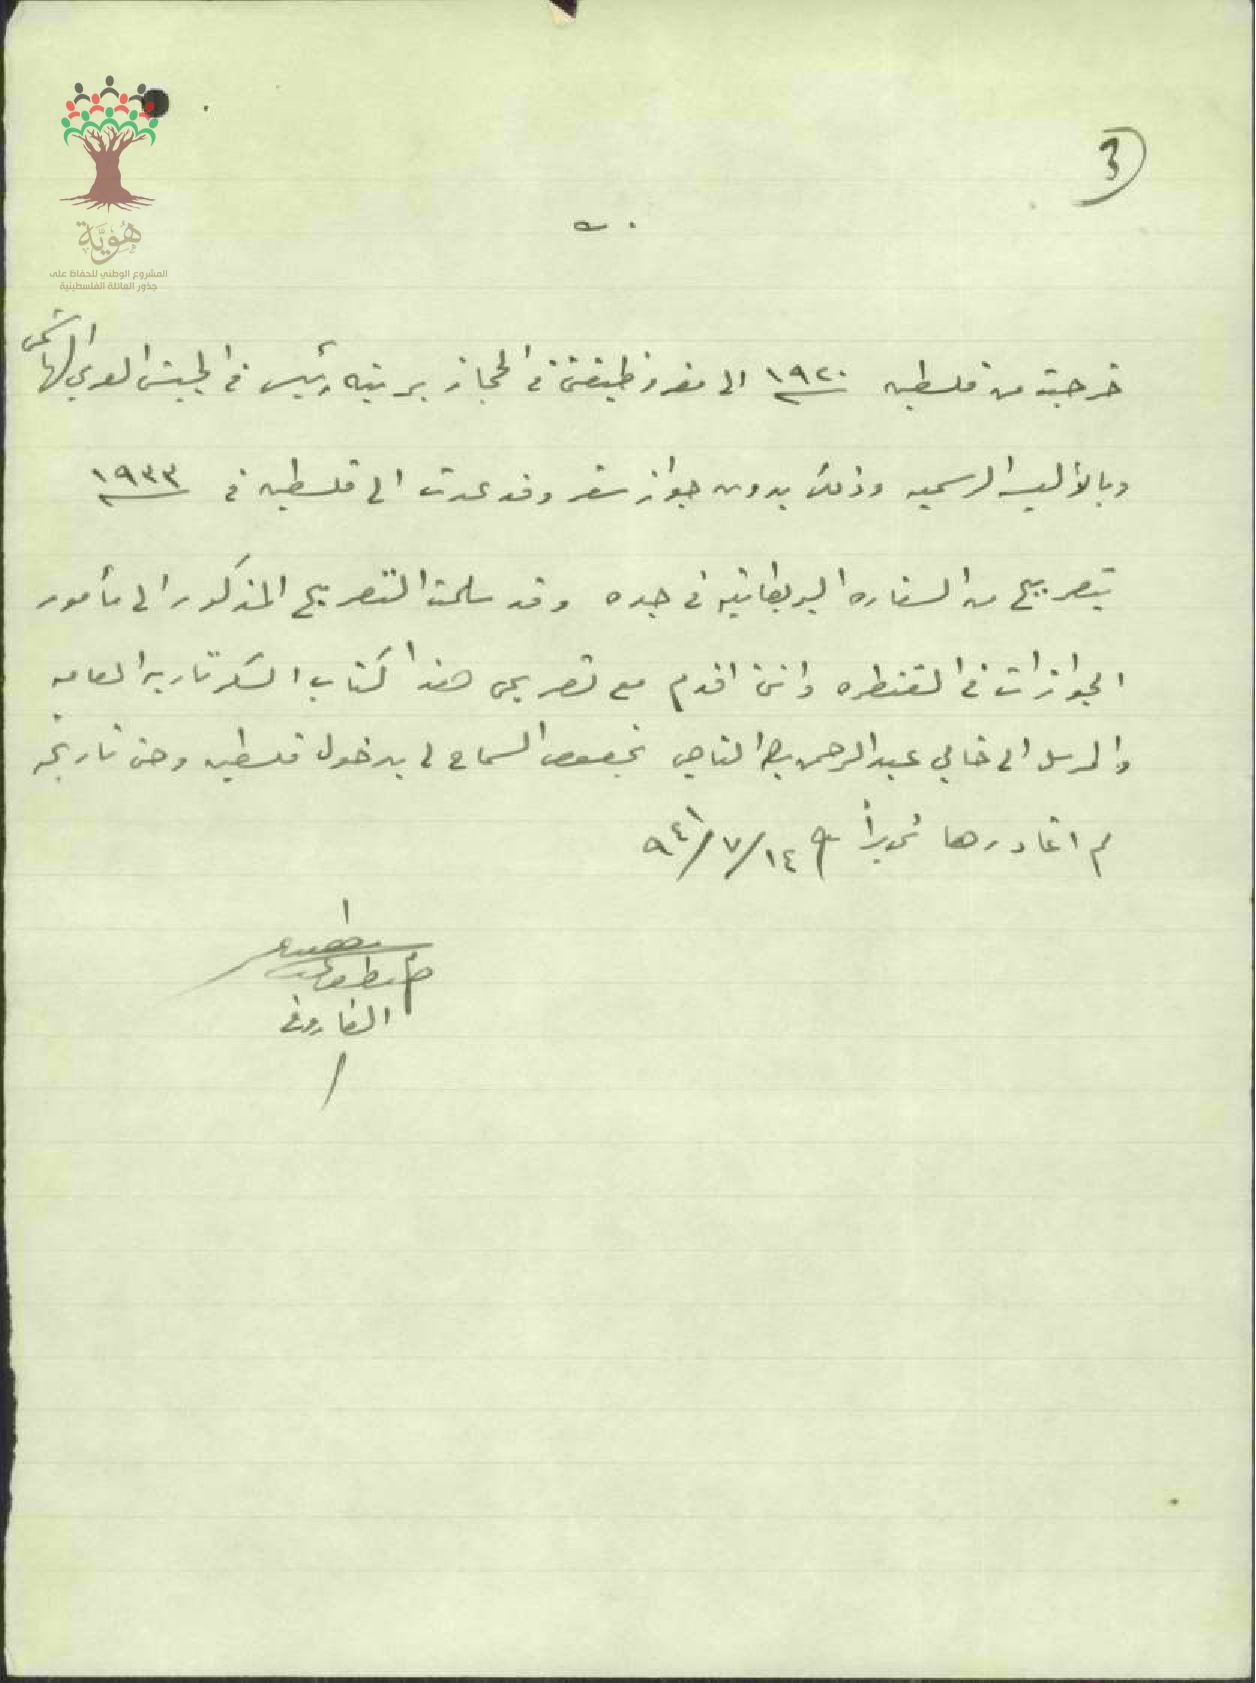 3
هُوِيَّة
المشروع الوطني للحفاظ على
جذور العائلة الفلسطينية
خرجت من فلسطين ١٩٢٠ الى مقر وظيفتي في الحجاز برتبة رئيس في الجيش العربي الهاشمي
وبالألبسه الرسميه وذلك بدون جواز سفر وقد عدت الى فلسطين في ١٩٣٣
بتصريح من السفاره البريطانيه في جده وقد سلمت التصريح المذكور الى مأمور
الجوازات في القنطره وانني اقدم مع تصريحي هذا كتاب السكرتاريه العامه
والمرسل الى خالي عبد الرحمن بك التاجي بخصوص السماح لي بدخول فلسطين وحتى تاريخه
لم اغادرها تحريراً في ١٤/٧/٩٤١
الفاروقي